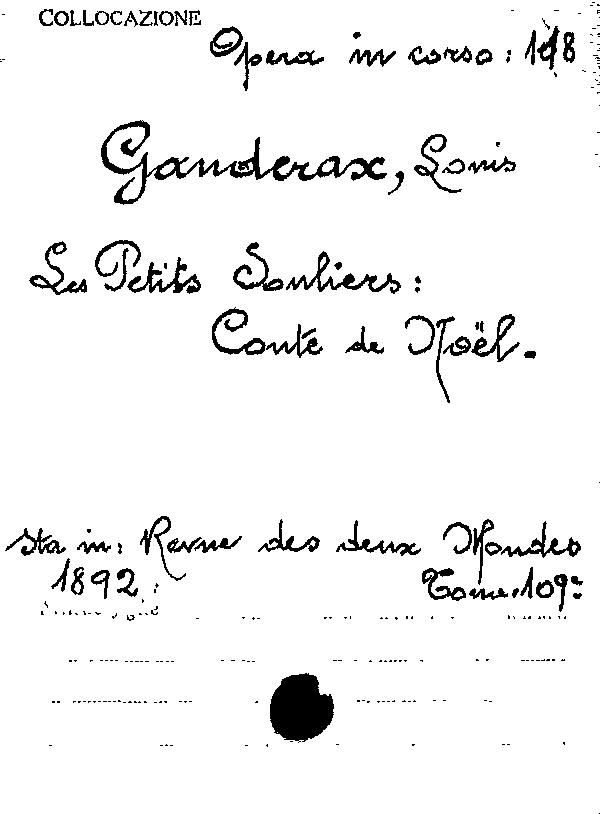 COLLOCAZIONE
Opera in corso: 148
Ganderax, Louis
Les Petits Souliers:
Conte de Noël.
Sta in: Revue des deux Mondes
1892. Tome. 109º